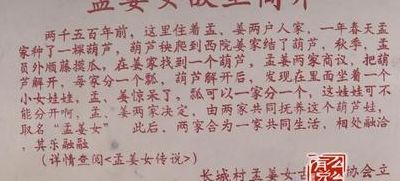 孟姜女故里简介
两千五百年前，这里住着孟、姜两户人家，一年春天孟
家种了一棵葫芦，葫芦秧爬到西院姜家结了葫芦，秋季，孟
员外顺藤摸瓜，在姜家找到一个葫芦，孟姜两家商议，把葫
芦解开，每家分一个瓢，葫芦解开后，发现在里面坐着一个
小女娃娃，孟、姜惊呆了，瓢可以一家分一个，这娃娃可不
能分开啊，孟、姜两家决定，由两家共同抚养这个葫芦娃，
取名“孟姜女” 此后，两家合为一家共同生活，相处融洽
，其乐融融
（详情查阅<孟姜女传说>）
长城村孟姜女 协会立